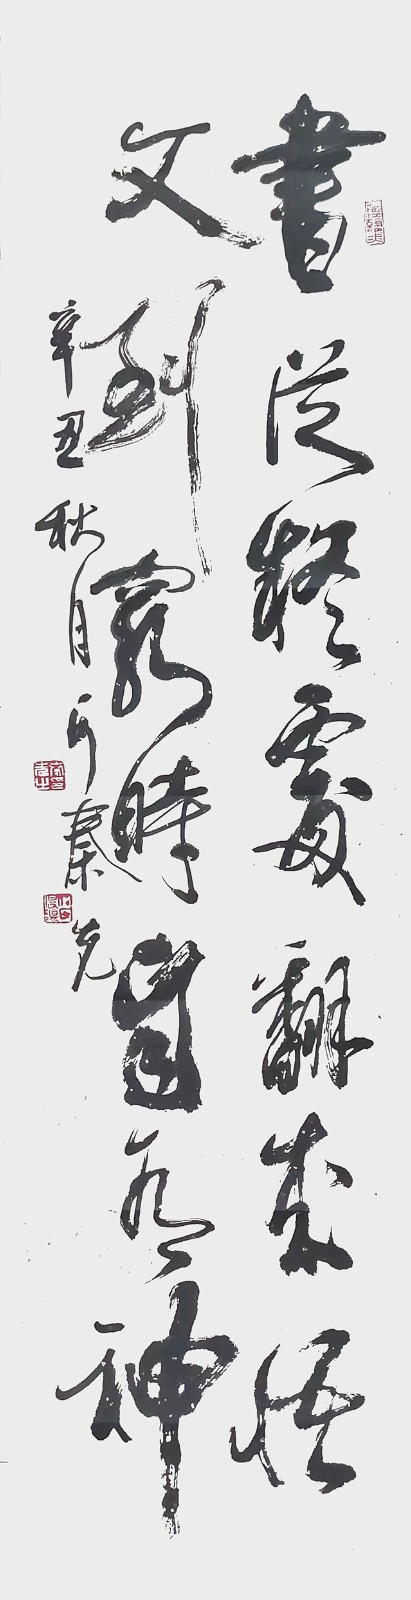 書從疑處翻成悟
文到窮時自有神
辛丑秋月秦克